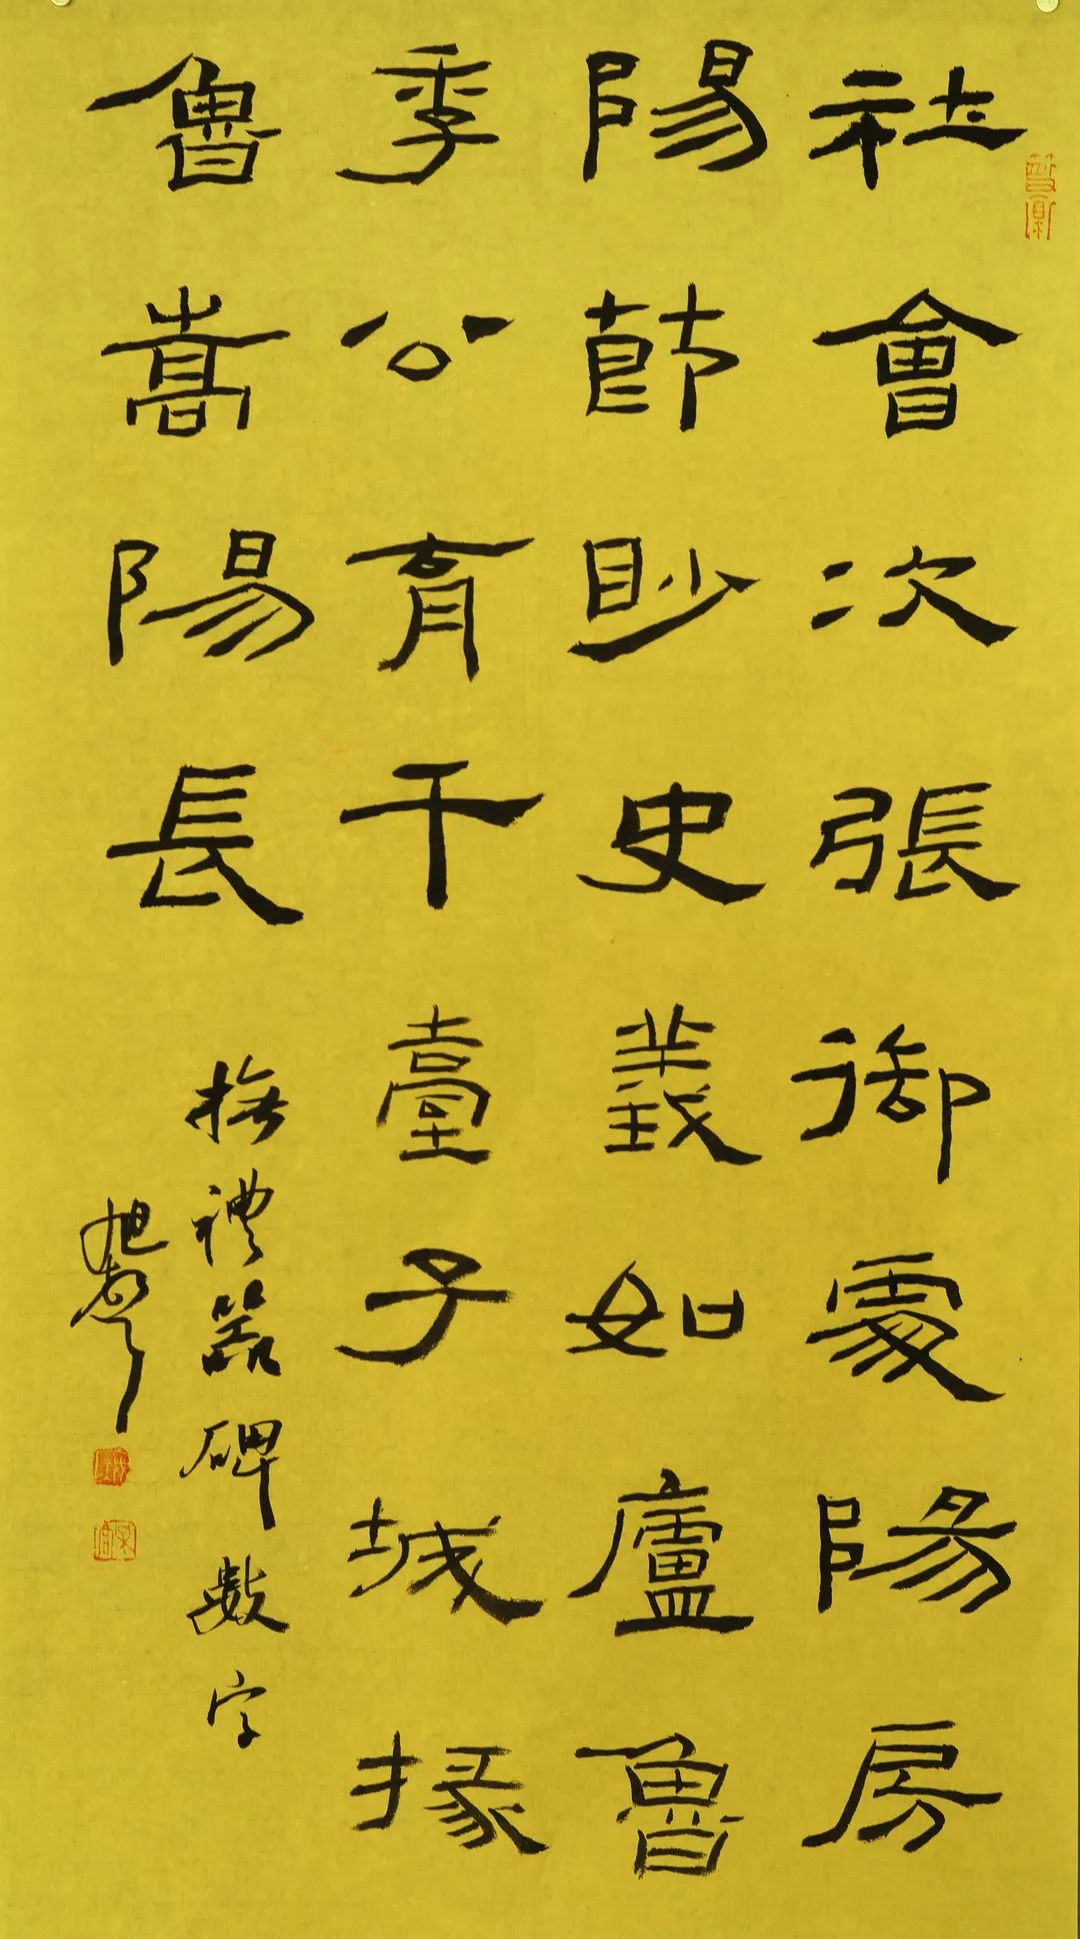 社會次張御處陽房
陽節眇史羲如廬魯
季公育干臺子城掾
魯嵩陽長
撫禮器碑數字